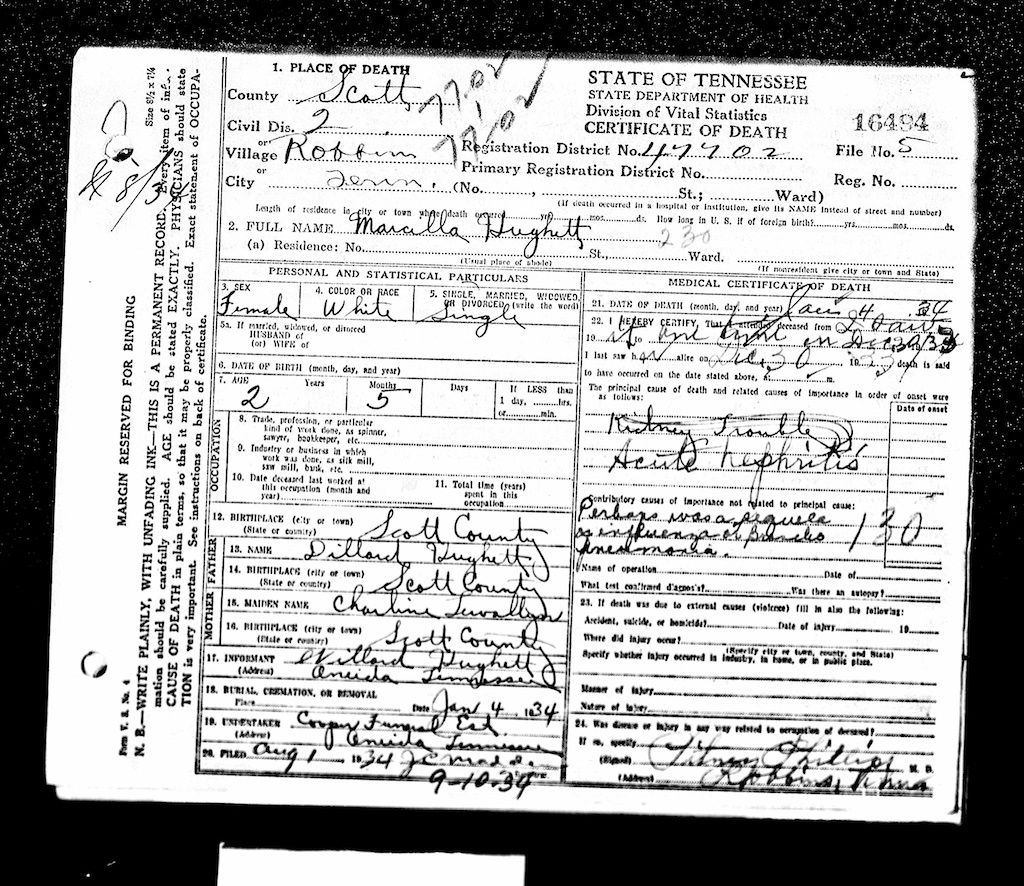 1. PLACE OF DEATH
County Scott
Civil Dis. 2
or
Village Robbins
or
City Tenn. (No. , St.; Ward)
7702
1
77-02
STATE OF TENNESSEE
STATE DEPARTMENT OF HEALTH
Division of Vital Statistics
CERTIFICATE OF DEATH
16494
Registration District No. 47702 File No. 5
Primary Registration District No. Reg. No.
(If death occurred in a hospital or institution, give its NAME instead of street and number)
Length of residence in city or town where death occurred yrs. mos. ds. How long in U. S. if of foreign birth? yrs. mos. ds.
2. FULL NAME Marcilla Hughett 230
(a) Residence: No. St., Ward.
(Usual place of abode) (If nonresident give city or town and State)
PERSONAL AND STATISTICAL PARTICULARS
3. SEX Female
4. COLOR OR RACE White
5. SINGLE, MARRIED, WIDOWED, OR DIVORCED (write the word) Single
5a. If married, widowed, or divorced
HUSBAND of
(or) WIFE of
6. DATE OF BIRTH (month, day, and year)
7. AGE Years 2 Months 5 Days If LESS than
1 day, hrs.
or min.
OCCUPATION
8. Trade, profession, or particular
kind of work done, as spinner,
sawyer, bookkeeper, etc.
9. Industry or business in which
work was done, as silk mill,
saw mill, bank, etc.
10. Date deceased last worked at
this occupation (month and
year)
11. Total time (years)
spent in this
occupation
12. BIRTHPLACE (city or town) Scott County
(State or country)
FATHER
13. NAME Dillard Hughett
14. BIRTHPLACE (city or town) Scott County
(State or country)
MOTHER
15. MAIDEN NAME Charline
16. BIRTHPLACE (city or town) Scott County
(State or country)
17. INFORMANT Hughett
(Address) Oneida Tennessee
18. BURIAL, CREMATION, OR REMOVAL
Place Date Jan 4 1934
19. UNDERTAKER Cooper Funeral Est.
(Address) Oneida Tennessee
20. FILED Aug 1 1934
9-10-34
MEDICAL CERTIFICATE OF DEATH
21. DATE OF DEATH (month, day, and year) Jan 4 34
22. I HEREBY CERTIFY, That I attended deceased from
19 it to one time in Dec 30/33
I last saw h er alive on Dec. 30 1933, death is said
to have occurred on the date stated above, a m.
The principal cause of death and related causes of importance in order of onset were
as follows:
Date of onset
Kidney Trouble
Acute Nephritis
Contributory causes of importance not related to principal cause:
Perhaps was a sequela
of influenza or Broncho
pneumonia.
130
Name of operation Date of
What test confirmed diagnosis? Was there an autopsy?
23. If death was due to external causes (violence) fill in also the following:
Accident, suicide, or homicide? Date of injury 19
Where did injury occur?
(Specify city or town, county, and State)
Specify whether injury occurred in industry, in home, or in public place.
Manner of injury
Nature of injury
24. Was disease or injury in any way related to occupation of deceased?
If so, specify
(Signed) Phillips M. D.
(Address) Robbins, Tenn
MARGIN RESERVED FOR BINDING
Size 8½ x 7¼
N. B.—WRITE PLAINLY, WITH UNFADING INK—THIS IS A PERMANENT RECORD. Every item of infor-
mation should be carefully supplied. AGE should be stated EXACTLY. PHYSICIANS should state
CAUSE OF DEATH in plain terms, so that it may be properly classified. Exact statement of OCCUPA-
TION is very important. See instructions on back of certificate.
Form V. S. No. 4